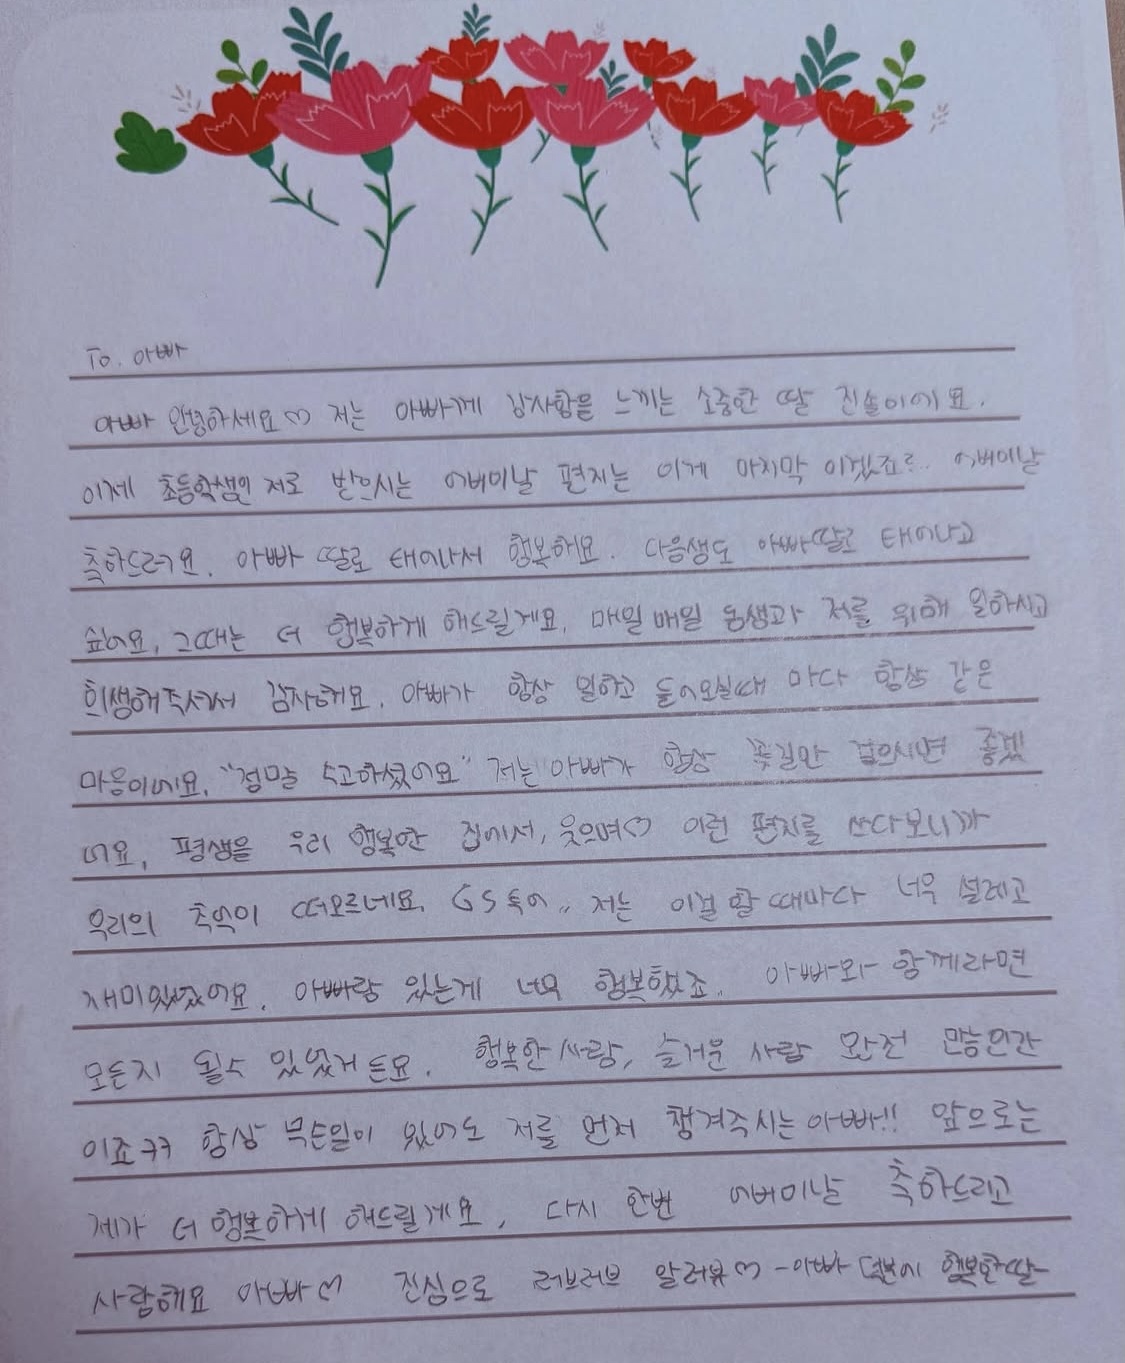 To. 아빠
아빠 안녕하세요♡ 저는 아빠께 감사함을 느끼는 소중한 딸 진솔이에요.
이제 초등학생인 저로 받으시는 어버이날 편지는 이게 마지막 이겠죠?.. 어버이날
축하드려요. 아빠 딸로 태어나서 행복해요. 다음생도 아빠딸로 태어나고
싶어요, 그때는 더 행복하게 해드릴게요. 매일매일 동생과 저를 위해 일하시고
희생해주셔서 감사해요. 아빠가 항상 일하고 들어오실때 마다 항상 같은
마음이에요. "정말 수고하셨어요" 저는 아빠가 항상 꽃길만 걸으시면 좋겠
네요, 평생을 우리 행복한 집에서, 웃으며♡ 이런 편지를 쓰다보니까
우리의 추억이 떠오르네요. GS 투어.. 저는 이걸 할 때마다 너무 설레고
재미있었어요. 아빠랑 있는게 너무 행복했죠.. 아빠와 함께라면
모든지 될수 있었거든요. 행복한 사람, 즐거운 사람 완전 만능인간
이죠ㅋㅋ 항상 무슨일이 있어도 저를 먼저 챙겨주시는 아빠!! 앞으로는
제가 더 행복하게 해드릴게요, 다시 한번 어버이날 축하드리고
사랑해요 아빠♡ 진심으로 러브러브 알러뷰♡ -아빠 덕분에 행복한딸-